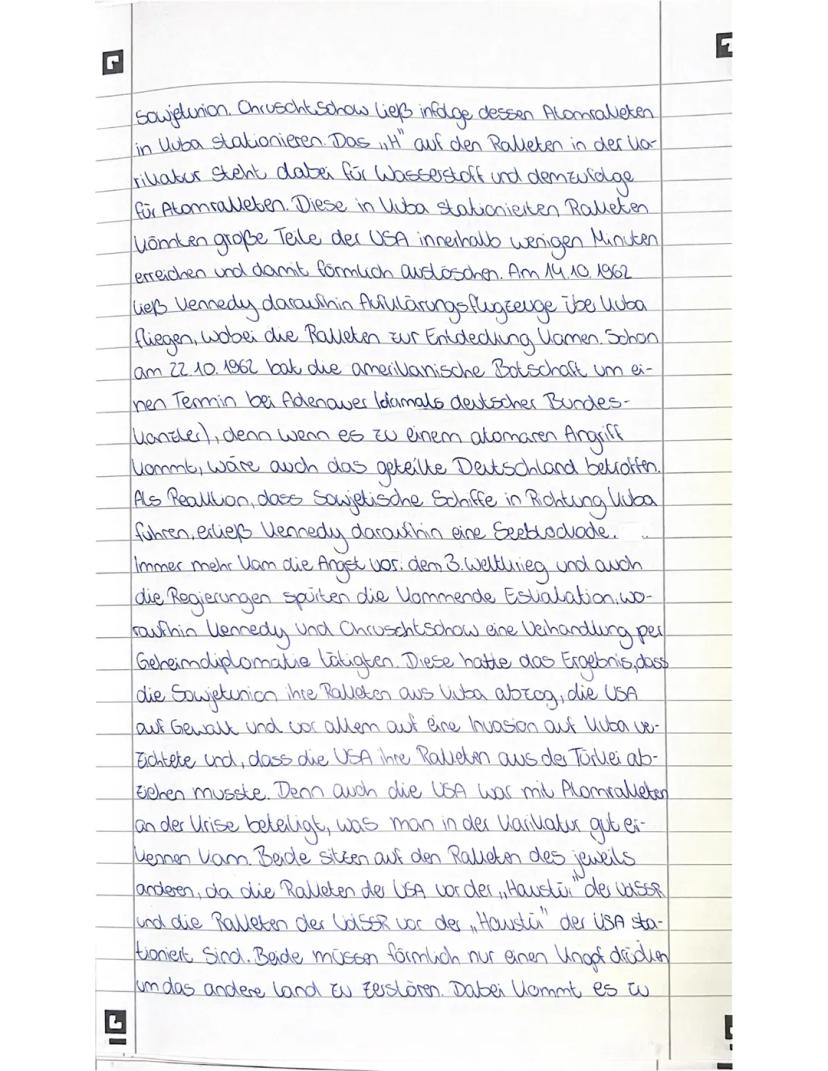 Sowjetunion. Chruschtschow ließ infolge dessen Atomraketen
in Kuba stationieren. Das „H" auf den Raketen in der Ka-
rikatur steht dabei für Wasserstoff und demzufolge
für Atomraketen. Diese in Kuba stationierten Raketen
könnten große Teile der USA innerhalb wenigen Minuten
erreichen und damit förmlich auslöschen. Am 14.10.1962
ließ Kennedy daraufhin Aufklärungsflugzeuge übe Kuba
fliegen, wobei die Raketen zur Entdeckung kamen. Schon
am 22.10.1962 bat die amerikanische Botschaft um ei-
nen Termin bei Adenauer (damals deutscher Bundes-
kanzler), denn wenn es zu einem atomaren Angriff
kommt, wäre auch das geteilte Deutschland betroffen.
Als Reaktion, dass Sowjetische Schiffe in Richtung Kuba
führen, erließ Kennedy daraufhin eine Seeblockade.
Immer mehr kam die Angst vor dem 3. Weltkrieg und auch
die Regierungen spürten die kommende Eskalation, wo-
raufhin Kennedy und Chruschtschow eine Verhandlung per
Geheimdiplomatie tätigten. Diese hatte das Ergebnis, dass
die Sowjetunion ihre Raketen aus Kuba abzog, die USA
auf Gewalt und vor allem auf eine Invasion auf Kuba ver-
zichtete und, dass die USA ihre Raketen aus der Türkei ab-
ziehen musste. Denn auch die USA war mit Atomraketen
an der Krise beteiligt, was man in der Karikatur gut er-
kennen kann. Beide sitzen auf den Raketen des jeweils
anderen, da die Raketen der USA vor der „Haustür" der UdSSR
und die Raketen der UdSSR vor der „Haustür" der USA sta-
tioniert sind. Beide müssen förmlich nur einen Knopf drücken
um das andere Land zu zerstören. Dabei kommt es zu